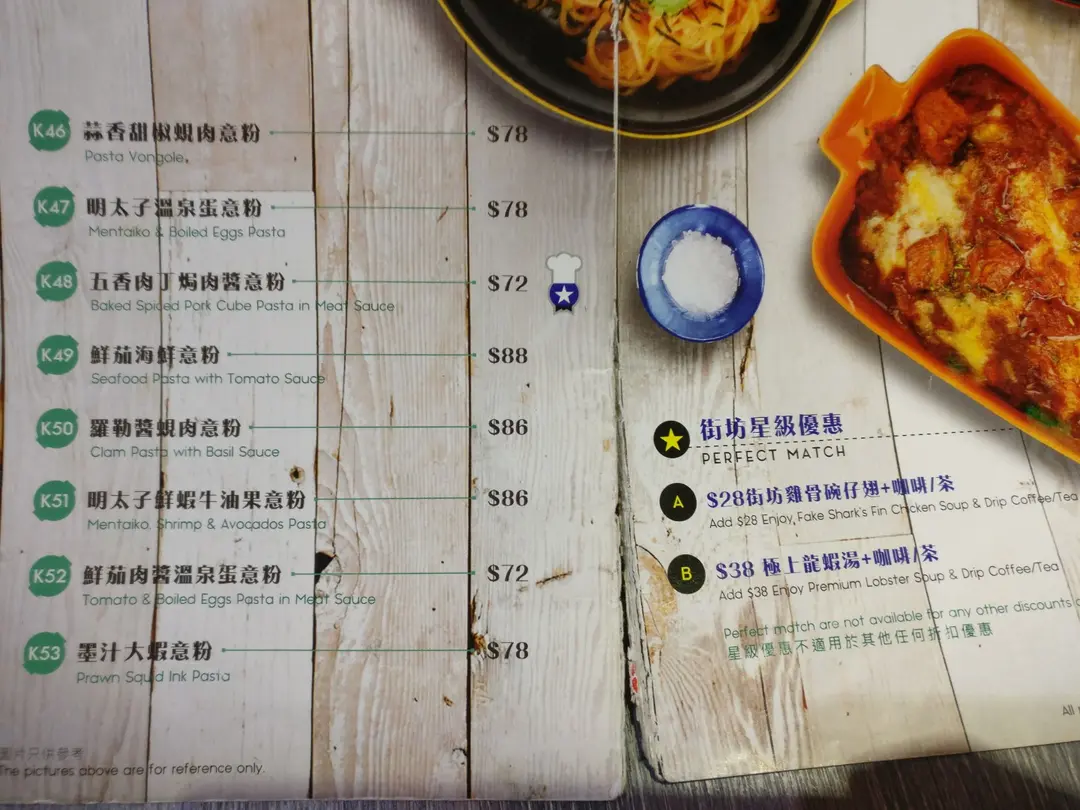 K46 蒜香甜椒蜆肉意粉 $78
Pasta Vongole,
K47 明太子溫泉蛋意粉 $78
Mentaiko & Boiled Eggs Pasta
K48 五香肉丁焗肉醬意粉 $72
Baked Spiced Pork Cube Pasta in Meat Sauce
K49 鮮茄海鮮意粉 $88
Seafood Pasta with Tomato Sauce
K50 羅勒醬蜆肉意粉 $86
Clam Pasta with Basil Sauce
K51 明太子鮮蝦牛油果意粉 $86
Mentaiko, Shrimp & Avocados Pasta
K52 鮮茄肉醬溫泉蛋意粉 $72
Tomato & Boiled Eggs Pasta in Meat Sauce
K53 墨汁大蝦意粉 $78
Prawn Squid Ink Pasta
圖片只供參考
The pictures above are for reference only.
街坊星級優惠
PERFECT MATCH
A $28街坊雞骨碗仔翅+咖啡/茶
Add $28 Enjoy, Fake Shark's Fin Chicken Soup & Drip Coffee/Tea
B $38 極上龍蝦湯+咖啡/茶
Add $38 Enjoy Premium Lobster Soup & Drip Coffee/Tea
Perfect match are not available for any other discounts
星級優惠不適用於其他任何折扣優惠
All